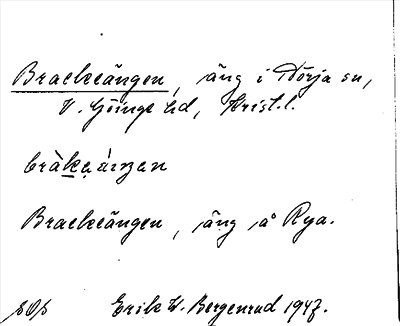 Brackeängen, äng i Dörja sn,
V. Göinge hd, Krist. l.
Brackeängen, äng på Rya.
Erik W. Bergenrud 1947.